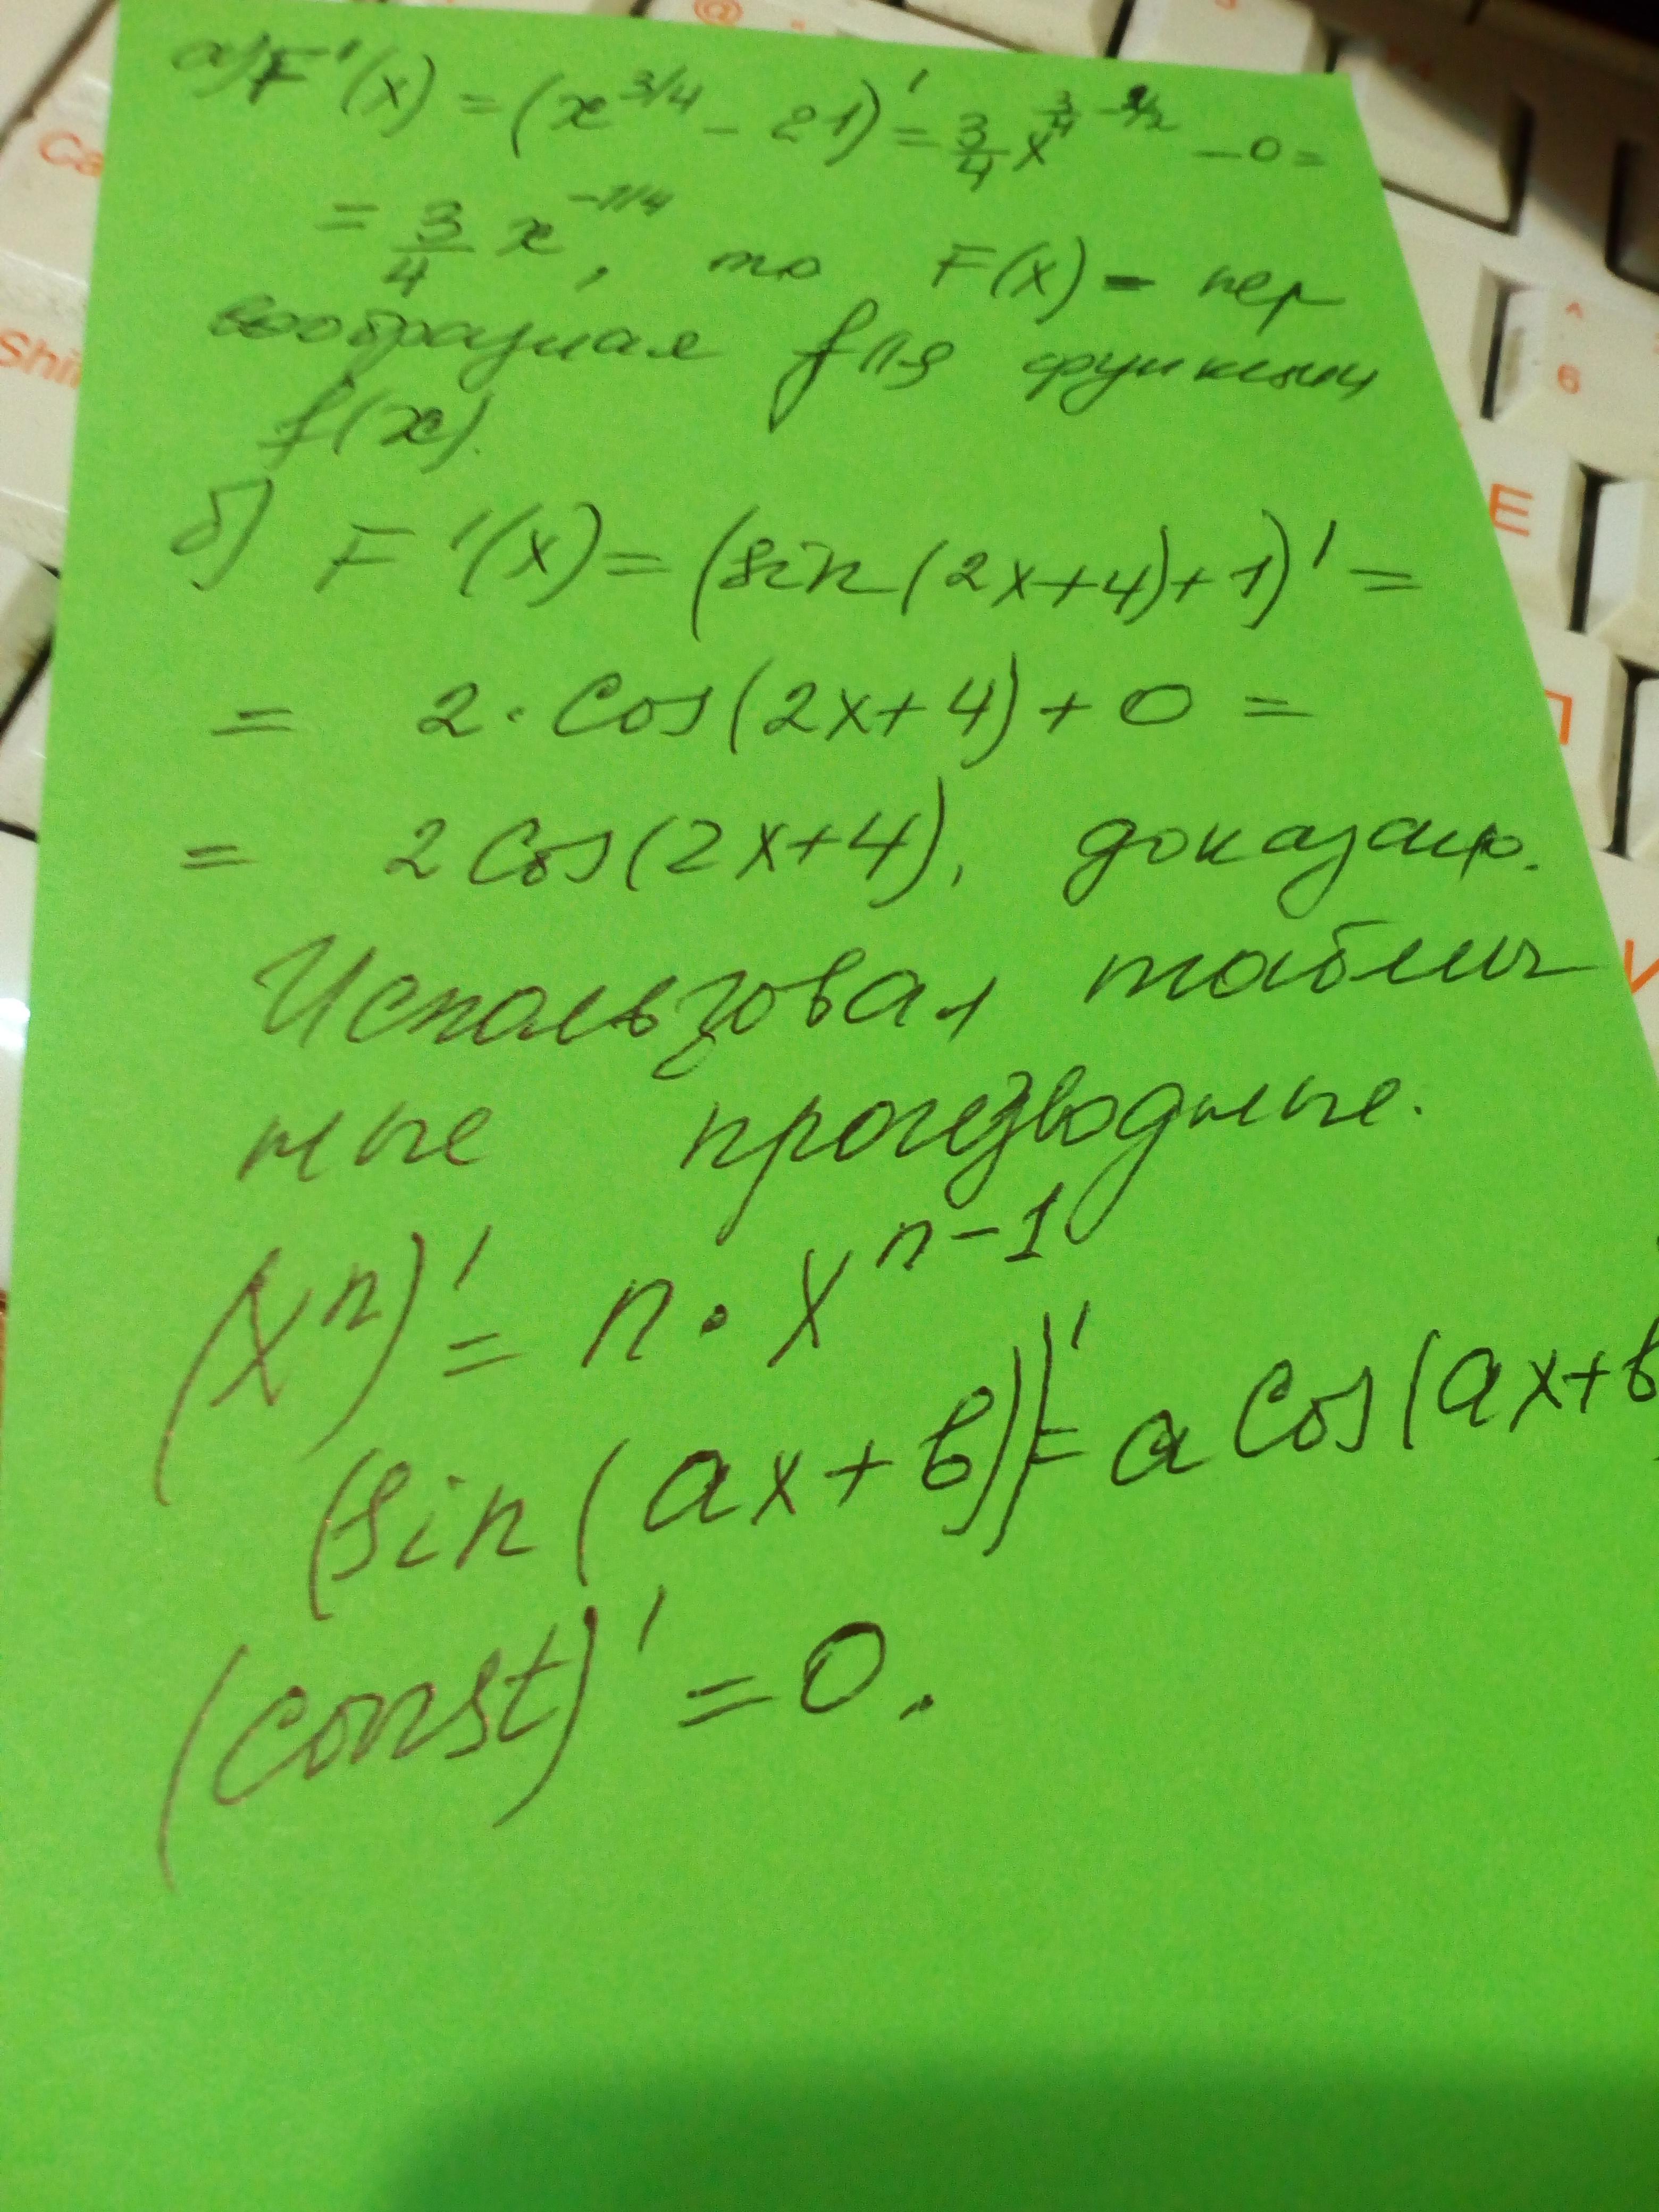 а) F'(x) = (x^{3/4} - 21)' = \frac{3}{4} x^{\frac{3}{4}} - 0 =
= \frac{3}{4} x^{-1/4}, то F(x) - пер
вообразная для функции
f(x).
б) F'(x) = (sin(2x+4)+1)' =
= 2 · cos(2x+4) + 0 =
= 2 cos(2x+4), доказано.
Использовал таблич
ные производные.
(x^n)' = n · x^{n-1}
(sin(ax+b))' = a cos(ax+b
(const)' = 0.
Shi
E
6
V